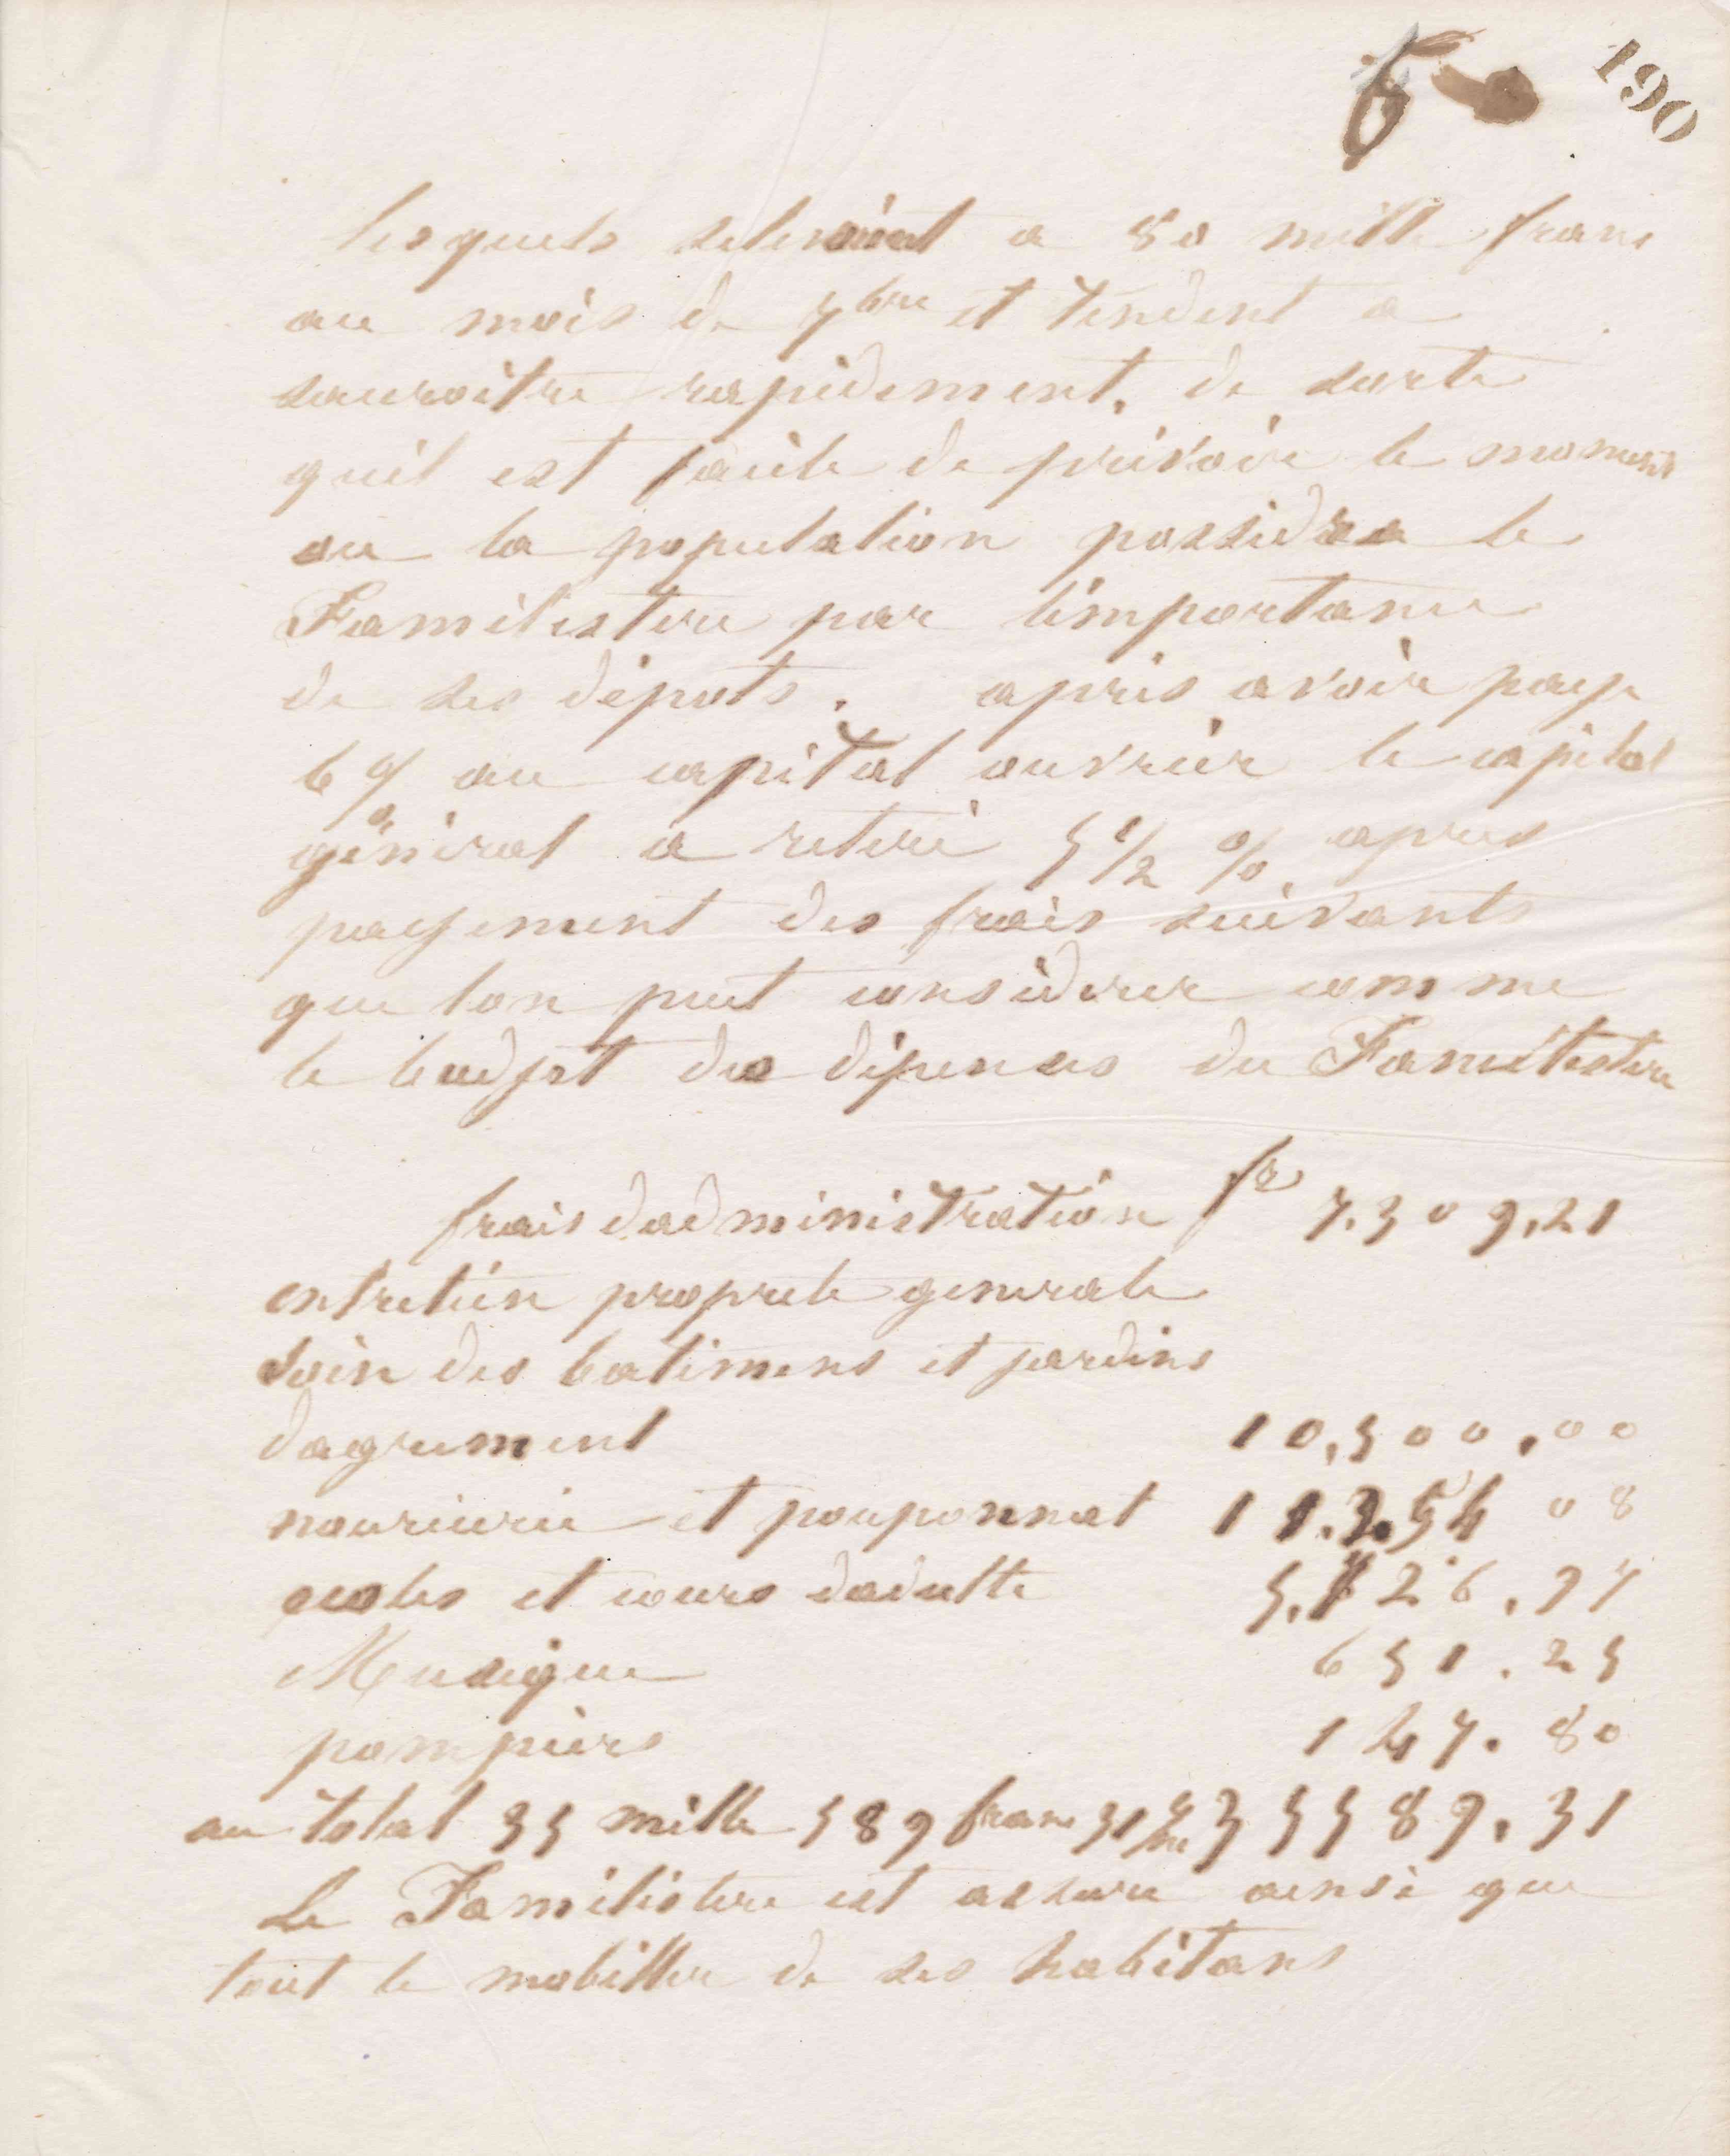 6 190
lesquels selevaient a 80 mille franc
au mois de 7bre et tendent a
saccroitre rapidement. de sorte
quil est facile de prévoir le moment
ou la population possédra le
Familistere par limportance
de ses dépots. après avoir payé
6 % au capital ouvrier le capital
général a retiré 5 1/2 % apres
payement des frais suivants
que lon peut considerer comme
le budjet des dépenses du Familistere
frais dadministration fr 7.309,21
entretien proprete generale
soin des batimens et jardins
dagrement 10,500,00
nourricerie et pouponnat 11.254 08
ecoles et cours dadulte 5.726,97
Musique 651.25
pompiers 147.80
au total 35 mille 589 franc 31 ces 35589,31
Le Familistere est assuré ainsi que
tout le mobillier de ses habitans